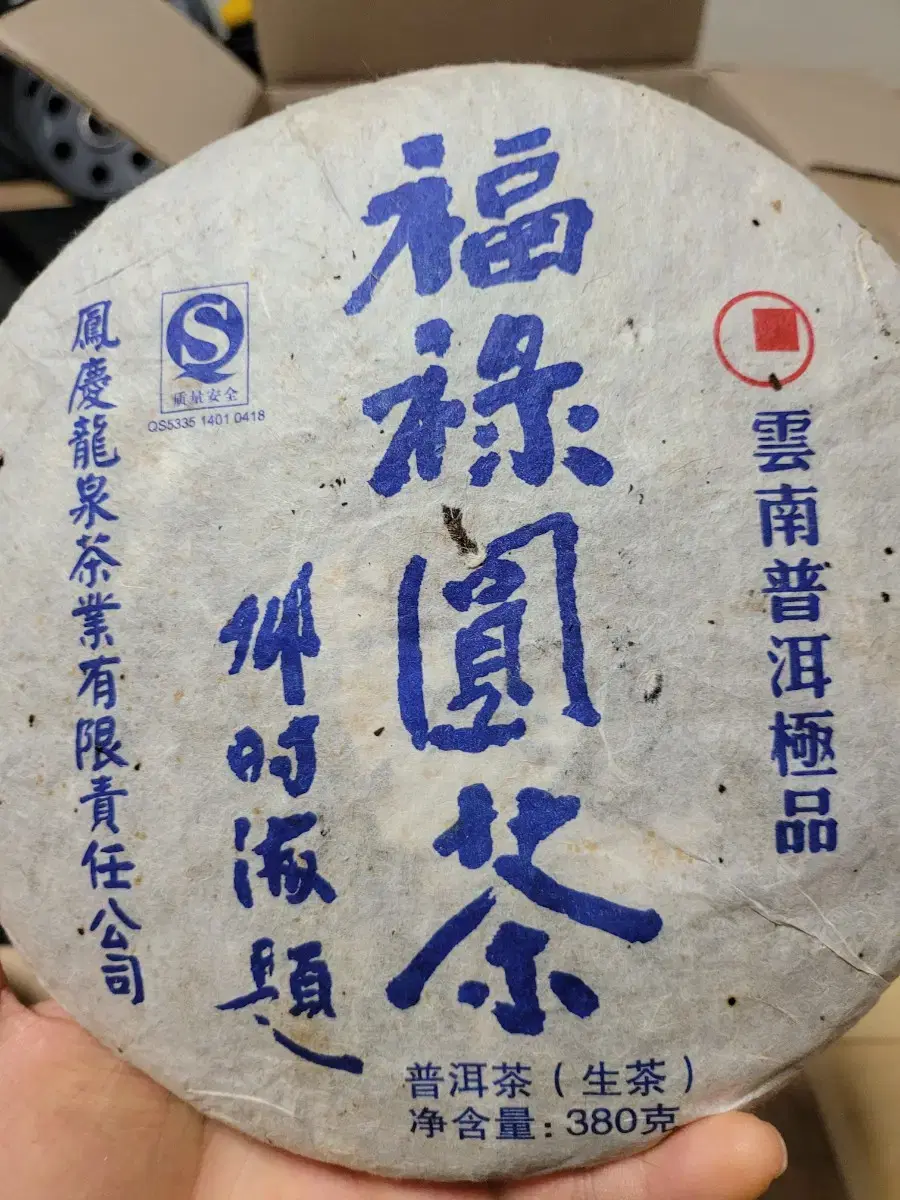 雲南普洱極品
福祿圓茶
时海題
质量安全
QS5335 1401 0418
鳳慶龍泉茶業有限責任公司
普洱茶（生茶）
净含量：380克